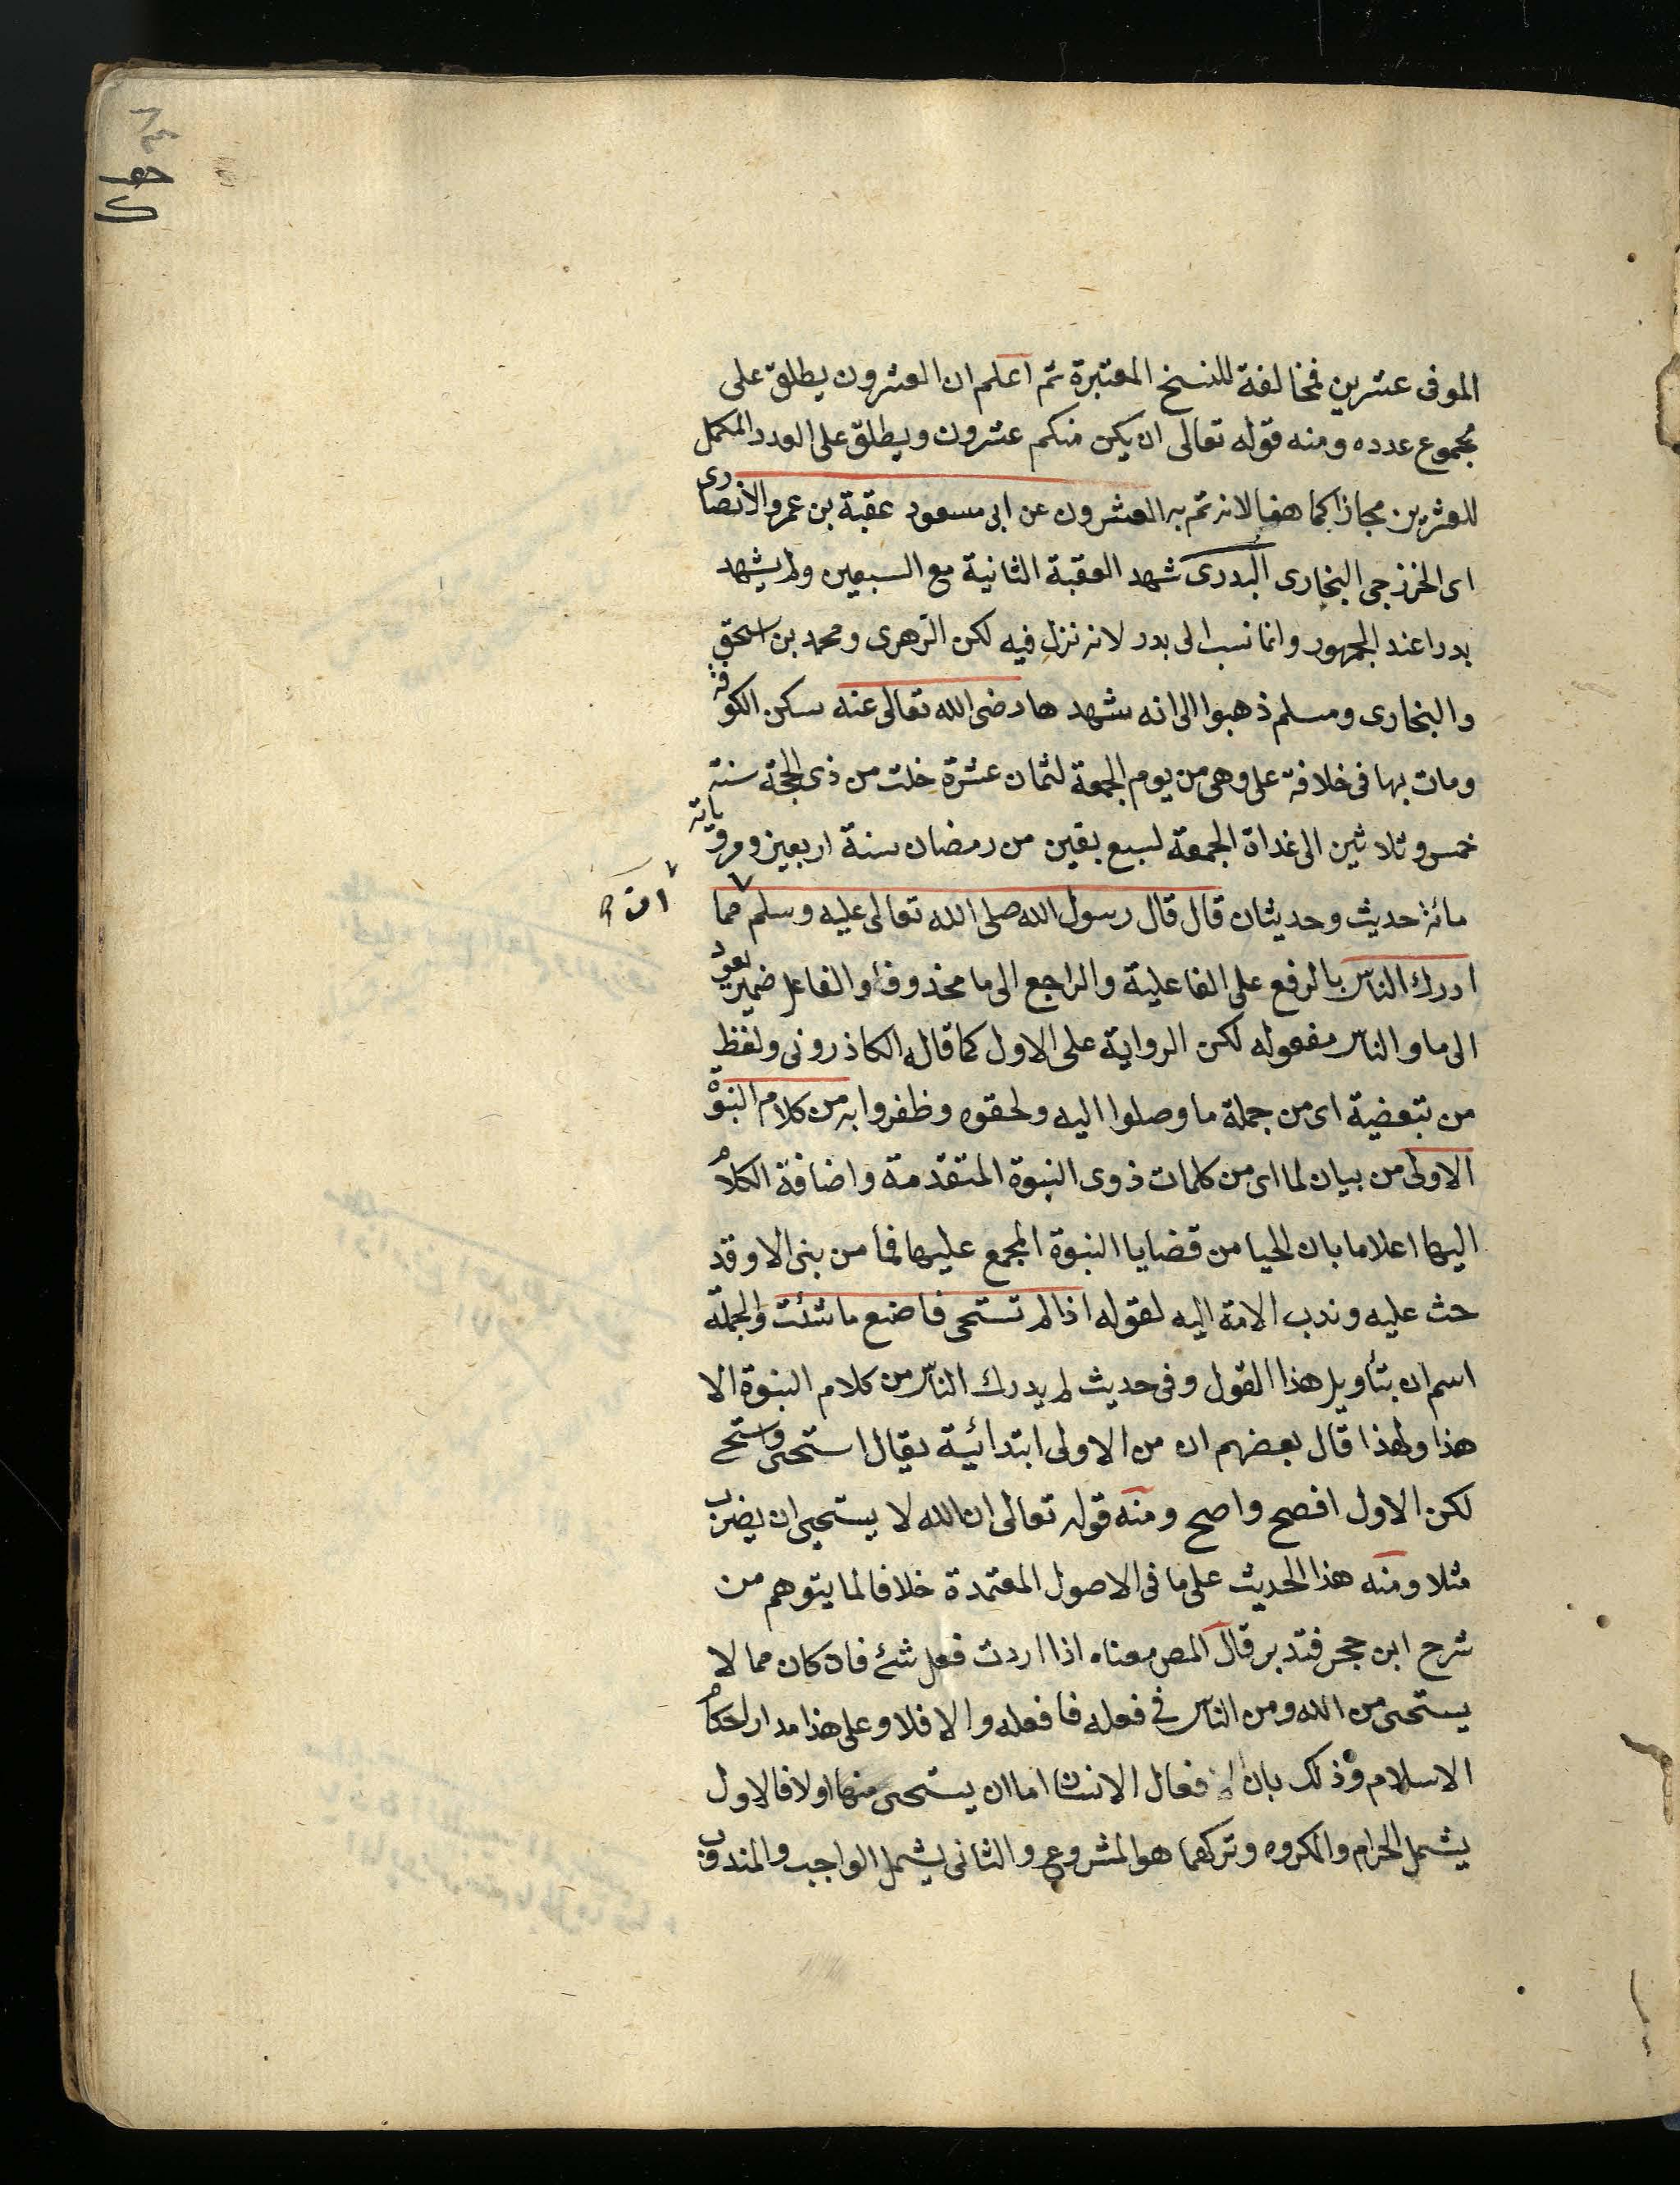 الموفى عشرين فمخالفة للنسخ المعتبرة ثم اعلم ان العشرون يطلق على
مجموع عدده ومنه قوله تعالى ان يكن منكم عشرون ويطلق على العدد المكمل
للعشرين مجازا كما هنا لانه تم به العشرون عن ابى مسعود عقبة بن عمرو الأنصارى
اى الخزرجى البخارى البدرى شهد العقبة الثانية مع السبعين ولم يشهد
بدرا عند الجمهور وانما نسب الى بدر لانه نزل فيه لكن الزهرى ومحمد بن اسحق
والبخارى ومسلم ذهبوا الى انه شهدها رضى الله تعالى عنه سكن الكوفة
ومات بها فى خلافة على وهى من يوم الجمعة لثمان عشرة خلت من ذى الحجة سنة
خمس وثلاثين الى غداة الجمعة لسبع بقين من رمضان سنة اربعين ومروياته
مائة حديث وحديثان قال قال رسول الله صلى الله تعالى عليه وسلم مما
ان
ادرك الناس بالرفع على الفاعلية والراجع الى ما محذوف او الفاعل ضمير يعود
الى ما والناس مفعوله لكن الرواية على الاول كما قاله الكاذرونى ولفظ
من تبعضية اى من جملة ما وصلوا اليه ولحقوه وظفروا به من كلام النبوة
الاولى من بيان لما اى من كلمات ذوى النبوة المتقدمة واضافة الكلام
اليها اعلاما بان الحيا من قضايا النبوة المجمع عليها فما من بنى الا وقد
حث عليه وندب الامة اليه لقوله اذا لم تستحى فاصنع ما شئت والجملة
اسم ان بتأويل هذا القول وفى حديث لم يدرك الناس من كلام النبوة الا
هذا ولهذا قال بعضهم ان من الاولى ابتدائية يقال استحيى واستحى
لكن الاول افصح واصح ومنه قوله تعالى ان الله لا يستحيى ان يضرب
مثلا ومنه هذا الحديث على ما فى الاصول المعتمدة خلافا لما يتوهم من
شرح ابن حجر فتدبر قال المص معناه اذا اردت فعل شئ فان كان مما لا
يستحى من الله ومن الناس فى فعله فافعله والا فلا وعلى هذا مدار احكام
الاسلام وذلك بان افعال الانسان اما ان يستحى منها او لا فالاول
يشمل الحرام والمكروه وتركهما هو المشروع والثانى يشمل الواجب والمندوب